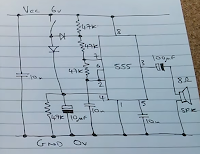 Vcc 6v
47K
47K
8
7
6
2
555
3
100µF
8Ω
SPK
10n
47K
10µF
4
1
5
10n
GND 0v